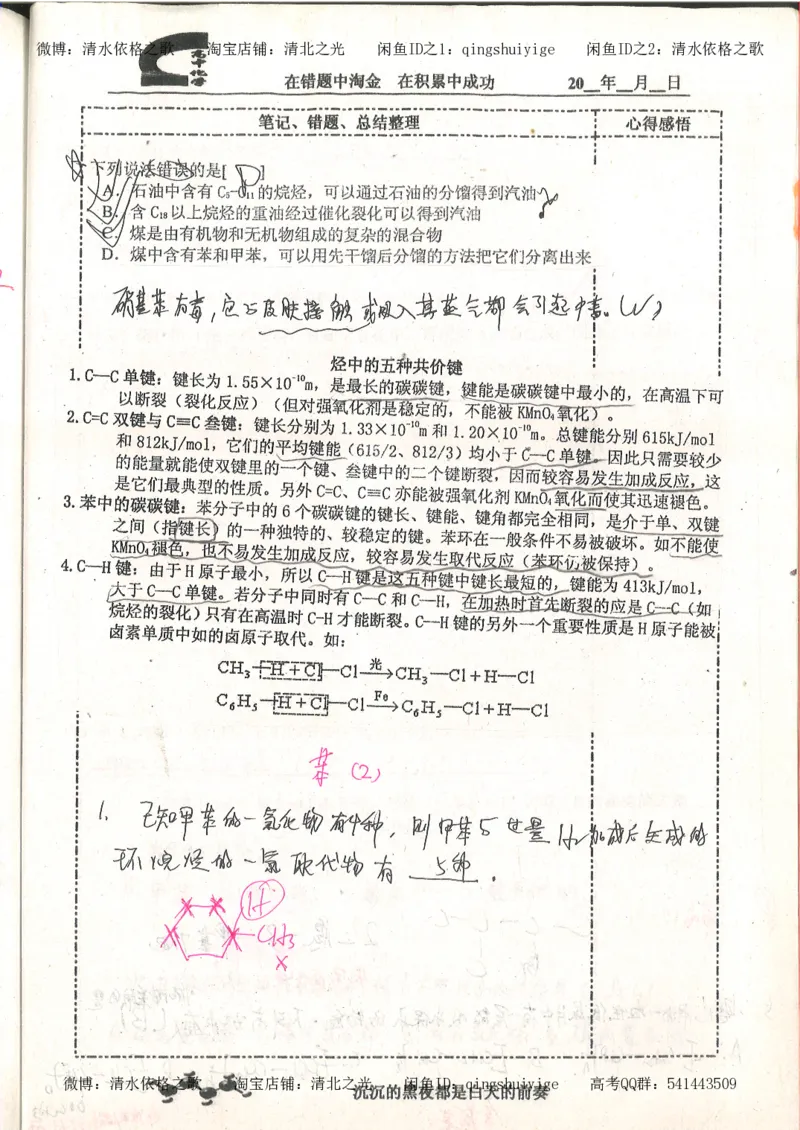 微博：清水依格之歌 淘宝店铺：清北之光 闲鱼ID之1：qingshuiyige 闲鱼ID之2：清水依格之歌
在错题中淘金 在积累中成功 20__年__月__日
笔记、错题、总结整理 心得感悟
下列说法错误的是[ D ]
A．石油中含有 C₅-C₁₁的烷烃，可以通过石油的分馏得到汽油
B．含 C₁₈以上烷烃的重油经过催化裂化可以得到汽油
C．煤是由有机物和无机物组成的复杂的混合物
D．煤中含有苯和甲苯，可以用先干馏后分馏的方法把它们分离出来
硝基苯有毒，它与皮肤接触或吸入其蒸气都会引起中毒。(√)
烃中的五种共价键
1.C—C 单键：键长为 1.55×10⁻¹⁰m，是最长的碳碳键，键能是碳碳键中最小的，在高温下可
以断裂（裂化反应）（但对强氧化剂是稳定的，不能被 KMnO₄氧化）。
2.C=C 双键与 C≡C 叁键：键长分别为 1.33×10⁻¹⁰m 和 1.20×10⁻¹⁰m。总键能分别 615kJ/mol
和 812kJ/mol，它们的平均键能（615/2、812/3）均小于 C—C 单键。因此只需要较少
的能量就能使双键里的一个键、叁键中的二个键断裂，因而较容易发生加成反应，这
是它们最典型的性质。另外 C=C、C≡C 亦能被强氧化剂 KMnO₄氧化而使其迅速褪色。
3.苯中的碳碳键：苯分子中的 6 个碳碳键的键长、键能、键角都完全相同，是介于单、双键
之间（指键长）的一种独特的、较稳定的键。苯环在一般条件不易被破坏。如不能使
KMnO₄褪色，也不易发生加成反应，较容易发生取代反应（苯环仍被保持）。
4.C—H 键：由于 H 原子最小，所以 C—H 键是这五种键中键长最短的，键能为 413kJ/mol，
大于 C—C 单键。若分子中同时有 C—C 和 C—H，在加热时首先断裂的应是 C—C（如
烷烃的裂化）只有在高温时 C-H 才能断裂。C—H 键的另外一个重要性质是 H 原子能被
卤素单质中如的卤原子取代。如：
CH₃—H＋Cl—Cl —光→ CH₃—Cl＋H—Cl
C₆H₅—H＋Cl—Cl —Fe→ C₆H₅—Cl＋H—Cl
苯 (2)
1. 已知甲苯的一氯化物有4种，则甲苯与足量H₂加成后生成的
环烷烃的一氯取代物有 5种 .
H
CH₃
微博：清水依格之歌 淘宝店铺：清北之光 闲鱼ID：qingshuiyige 高考QQ群：541443509
沉沉的黑夜都是白天的前奏